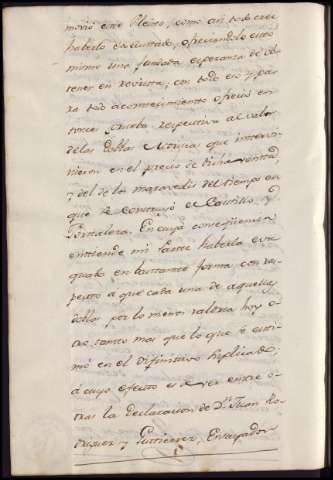 movió este Pleito, como asi todo cree
haberlo executado, ofreciendole esto
mismo una fundada esperanza de ob
tener en revista, con todo eso y pa
ra todo acontecimiento ofrecio en
tonces prueba respectiva al valor
de las doblas que intervi
nieron en el precio de dicha venta
y del de los maravedis del tiempo en
que se construyó el Castillo, y
Fortaleza. En cuya consequencia
entiende mi Parte haberlo eva
quado en bastante forma con res
pecto a que cada una de aquellas
doblas por lo menos valdria hoy o
tro tanto mas que lo que se esti
mó en el Difinitivo suplicado,
á cuyo efecto es de ver entre o
tras la declaracion de Dn. Juan Ro
driguez y Gutierrez, Ensayador